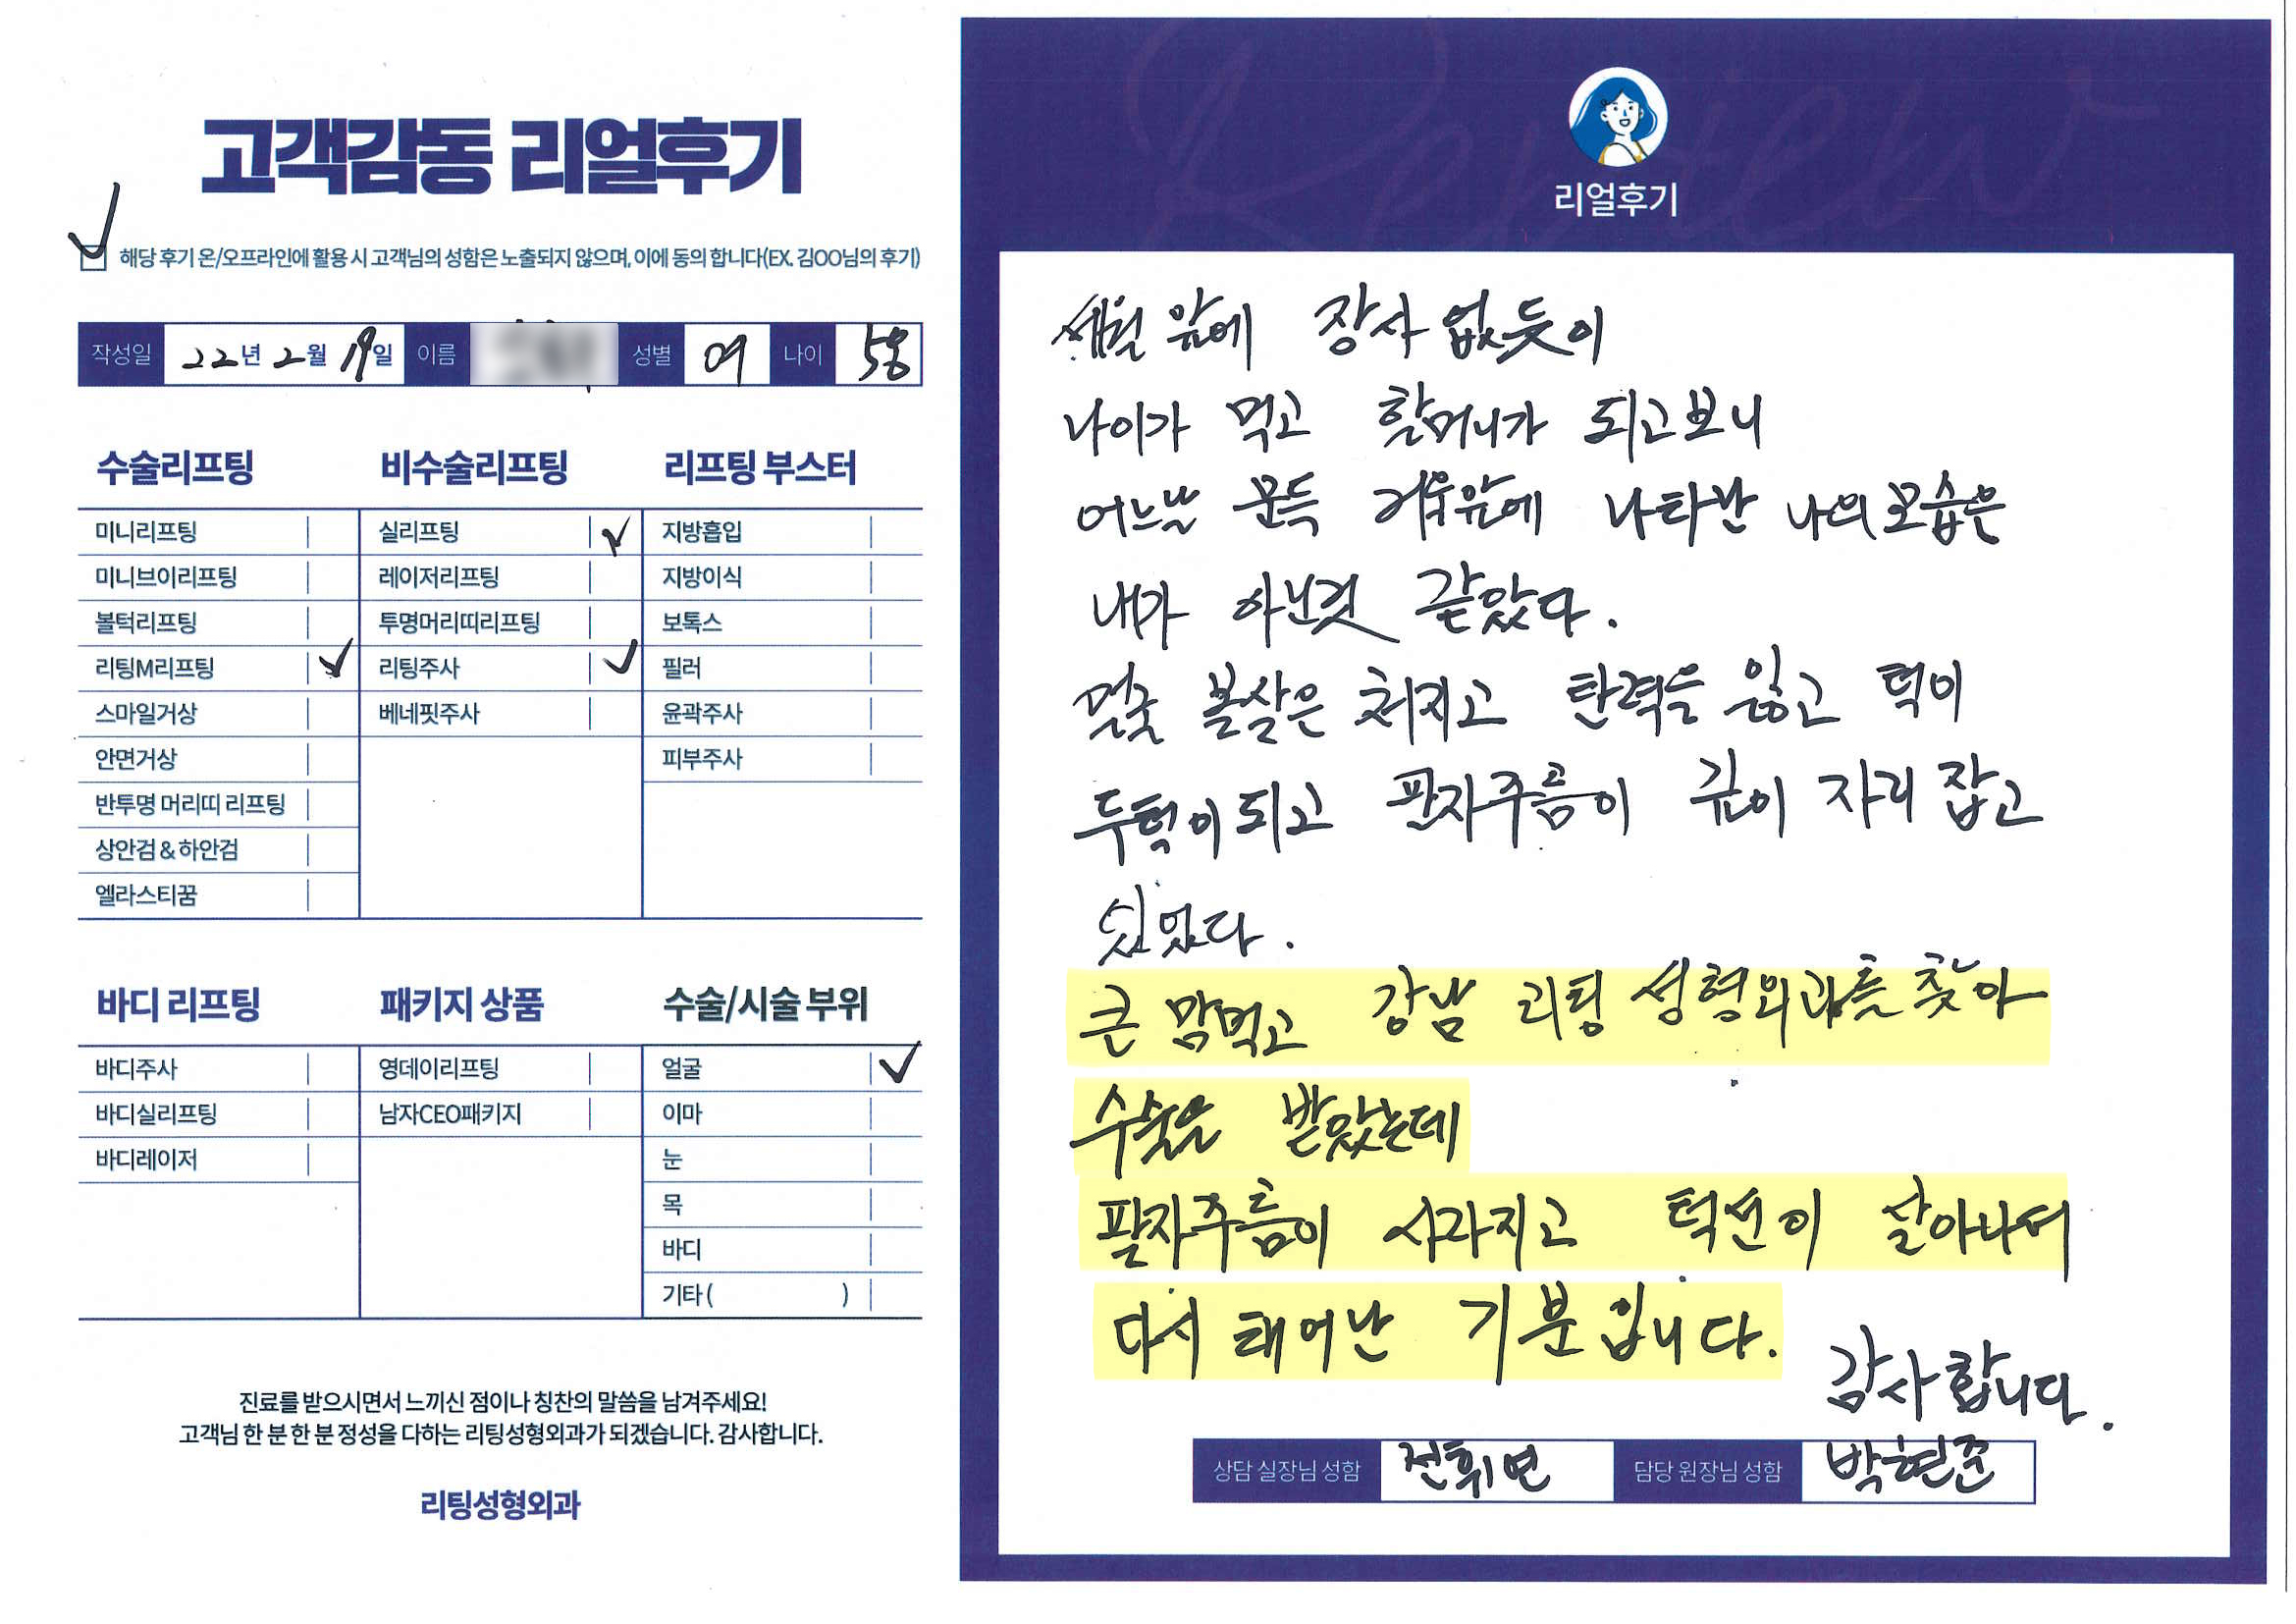 고객감동 리얼후기
해당 후기 온/오프라인에 활용 시 고객님의 성함은 노출되지 않으며, 이에 동의 합니다(EX. 김OO님의 후기)
작성일 22년 2월 19일 이름 성별 여 나이 58
수술리프팅
미니리프팅
미니브이리프팅
볼턱리프팅
리팅M리프팅
스마일거상
안면거상
반투명 머리띠 리프팅
상안검 & 하안검
엘라스티꿈
비수술리프팅
실리프팅
레이저리프팅
투명머리띠리프팅
리팅주사
베네핏주사
리프팅 부스터
지방흡입
지방이식
보톡스
필러
윤곽주사
피부주사
바디 리프팅
바디주사
바디실리프팅
바디레이저
패키지 상품
영데이리프팅
남자CEO패키지
수술/시술 부위
얼굴
이마
눈
목
바디
기타 ( )
진료를 받으시면서 느끼신 점이나 칭찬의 말씀을 남겨주세요!
고객님 한 분 한 분 정성을 다하는 리팅성형외과가 되겠습니다. 감사합니다.
리팅성형외과
Review
리얼후기
세월 앞에 장사 없듯이
나이가 먹고 할머니가 되고보니
어느날 문득 거울앞에 나타난 나의 모습은
내가 아닌것 같았다.
얼굴 볼살은 처지고 탄력을 잃고 턱이
두턱이 되고 팔자주름이 깊이 자리 잡고
있었다.
큰 맘먹고 강남 리팅 성형외과를 찾아
수술을 받았는데
팔자주름이 사라지고 턱선이 살아나며
다시 태어난 기분입니다.
감사합니다.
상담 실장님 성함 전휘연 담당 원장님 성함 박현준